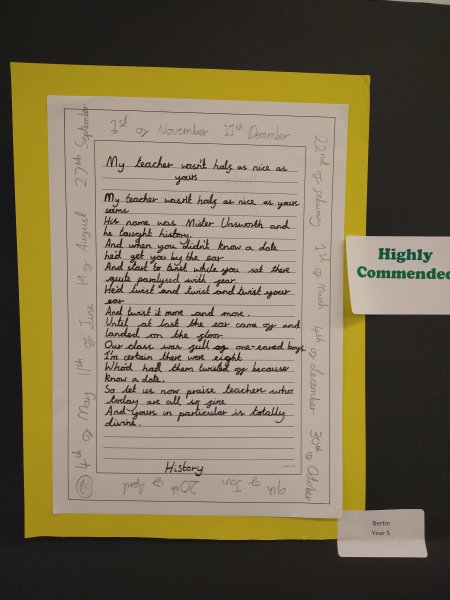 1st of November 17th December
27th September
19 of August
11th of June
4th of May
22nd of february
1st of march
4th of december
30th of October
My teacher wasn't half as nice as
yours
My teacher wasn't half as nice as yours
seems
His name was Mister Unsworth and
he taught history.
And when you didn't know a date
he'd get you by the ear
And start to twist while you sat there
quite paralysed with fear
He'd twist and twist and twist your
ear
And twist it more and more.
Until at last the ear came off and
landed on the floor.
Our class was full of one-eared boys
I'm certain there were eight
Who'd had them twisted of because
know a date.
So let us now praise teachers who
today are all so fine
And yours in particular is totally
divine.
History
9th of Jan 20th of April
Highly
Commended
Bertie
Year 5